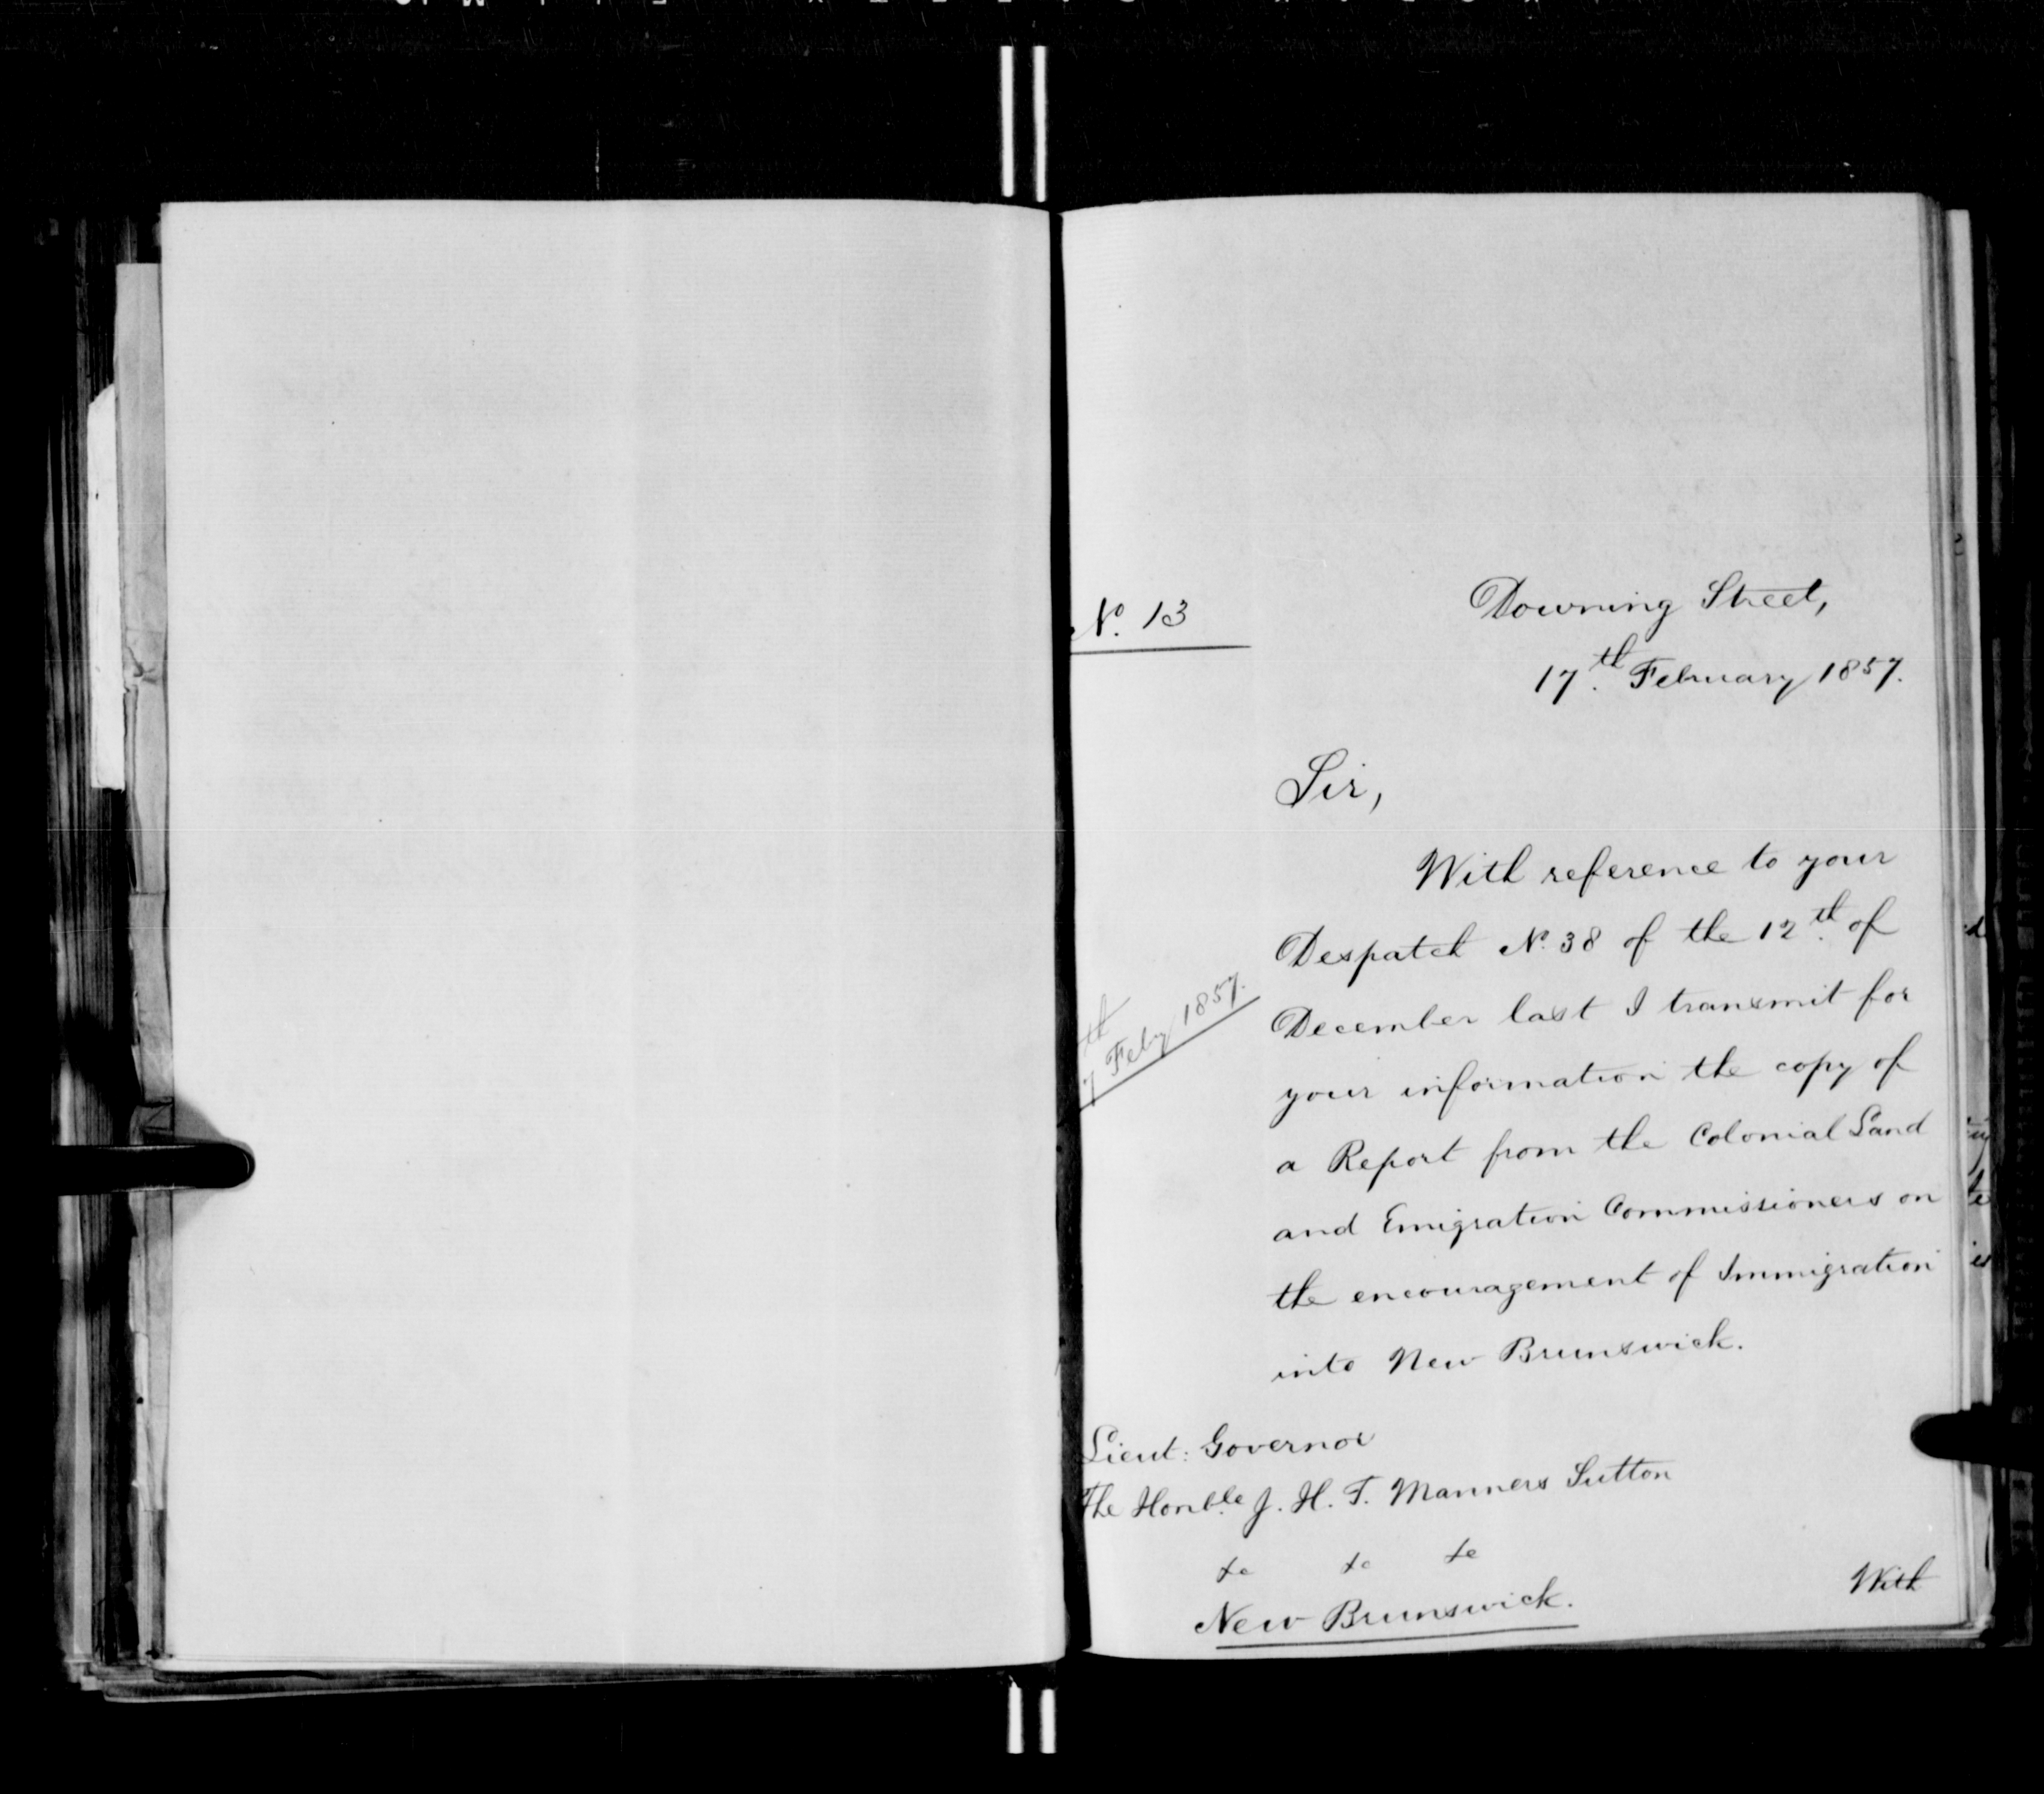 No. 13
Downing Street,
17th. February 1857.
Sir,
With reference to your
Despatch No. 38 of the 12th. of
December last I transmit for
your information the copy of
a Report from the Colonial Land
and Emigration Commissioners on
the encouragement of Immigration
into New Brunswick.
7th Feby 1857.
Lieut: Governor
The Honble. J. H. T. Manners Sutton
&c &c &c
New Brunswick.
With